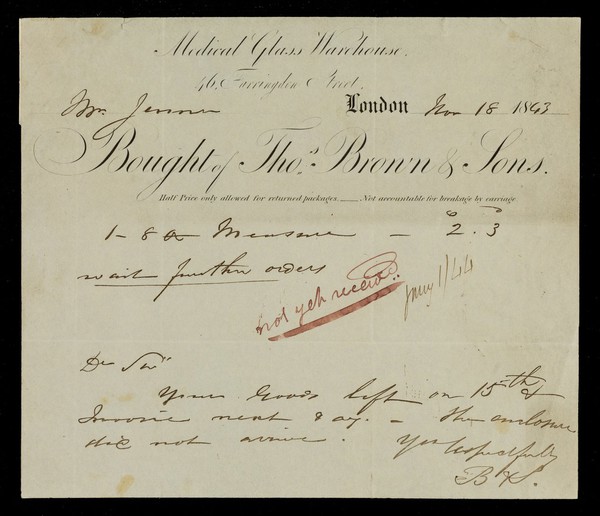 Medical Glass Warehouse.
46, Farringdon Street.
Mr. Jenner London Nov 18 1843
Bought of Thos. Brown & Sons.
Half Price only allowed for returned packages. Not accountable for breakage by carriage
1 - 8 oz Measure - 2.3
wait further orders
not yet received
Jany 1/44
Dr Sir
Your Goods left on 15th &
Invoice next day. - the enclosure
did not arrive. Yrs respectfully
B & S.